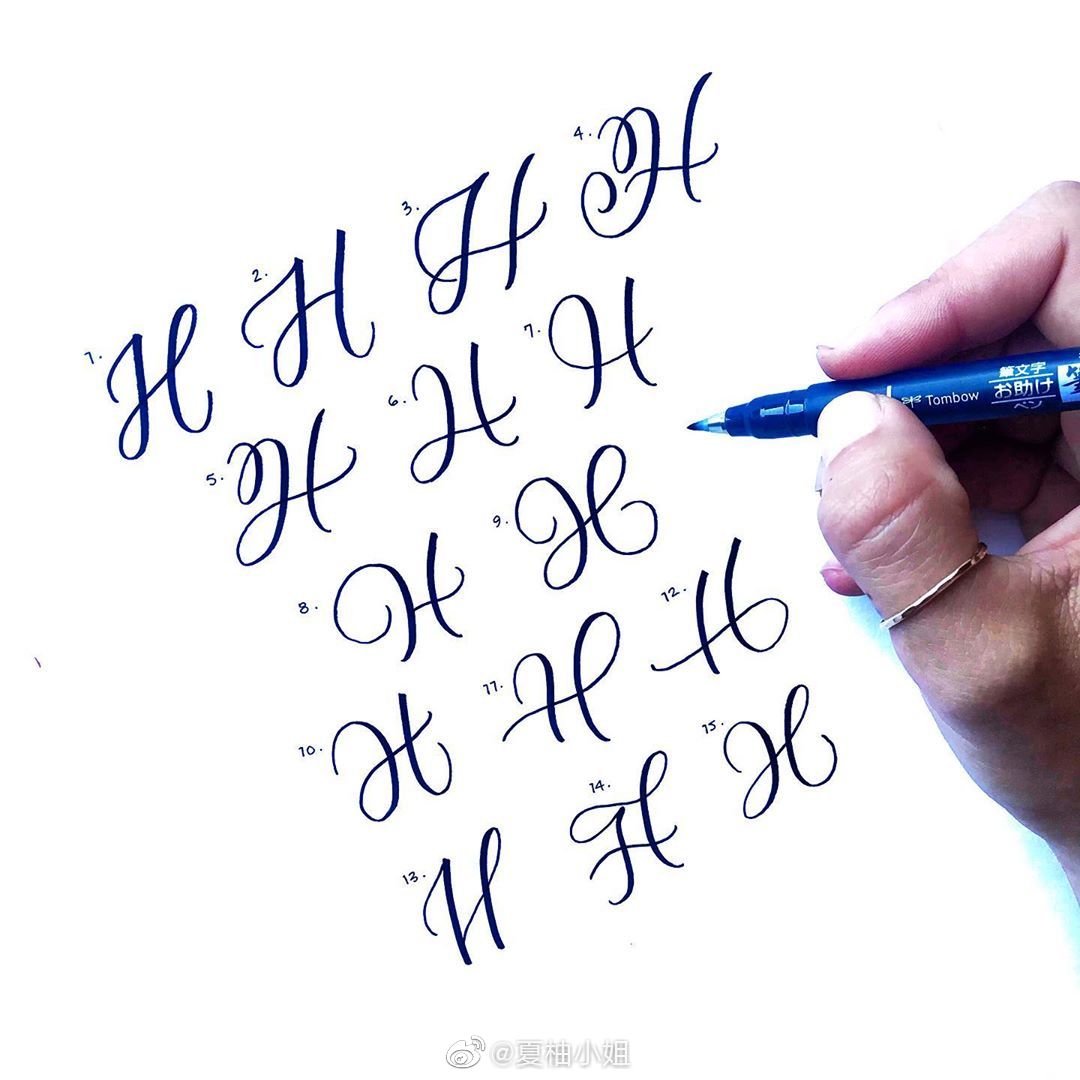 1. H
2. H
3. H
4. H
5. H
6. H
7. H
8. H
9. H
10. H
11. H
12. H
13. H
14. H
15. H
筆文字
お助け
ペン
Tombow
筆
@夏柚小姐